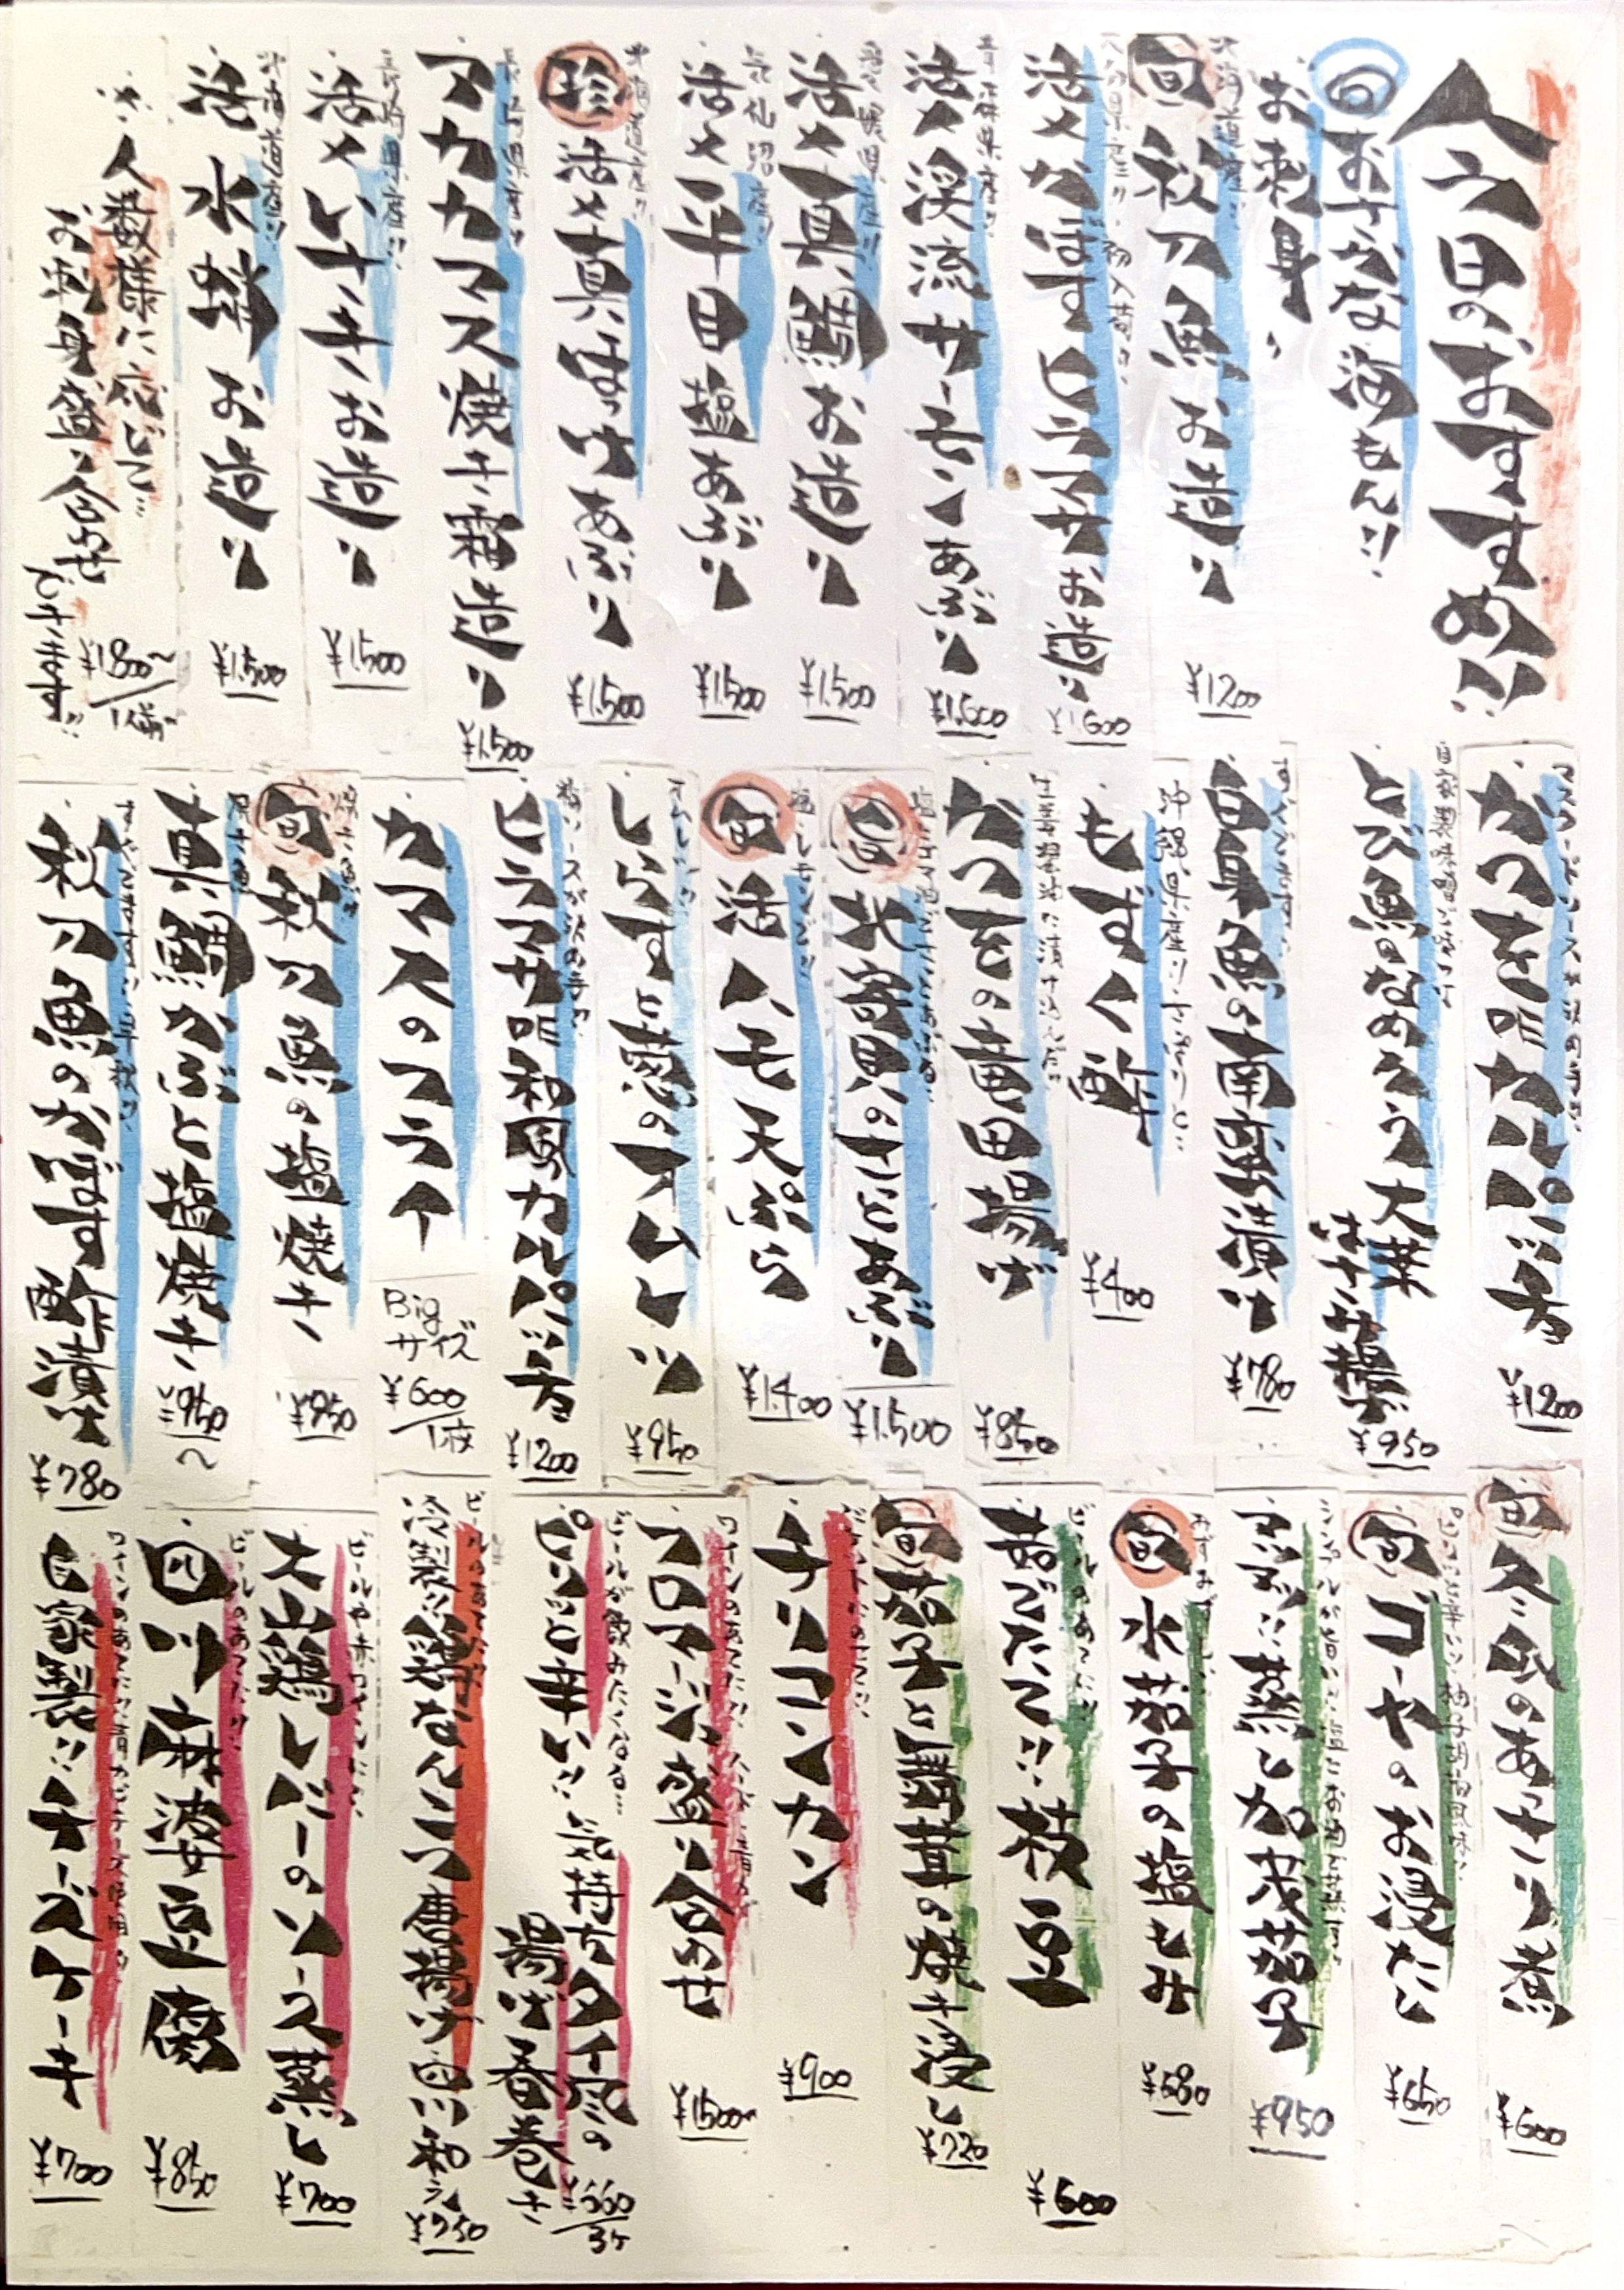 八日のおすすめ!!
旬
おすすめな海もん!!
お刺身
北海道産!!
旬 秋刀魚 お造り
¥1200
大分県産!! 初入荷!!
活〆かぼすヒラマサお造り
¥1600
青森県産!!
活〆渓流サーモンあぶり
¥1,600
愛媛県産!!
活〆真鯛お造り
¥1,500
気仙沼産!!
活〆平目塩あぶり
¥1,500
北海道産!!
珍 活〆真ほっけあぶり
¥1,500
長崎県産!!
アカカマス焼き霜造り
¥1,500
長崎県産!!
活〆いサキお造り
¥1,500
北海道産!!
活水蛸お造り
¥1,500
人数様に応じて!!
お刺身盛り合わせ
できます!!
¥1,800〜/1人前
かつを昆カルパッチョ
¥1200
自家製味噌
とび魚のなめろう大葉
はさみ揚げ
¥950
白身魚の南蛮漬け
¥780
沖縄県産!!
もずく酢
¥400
生姜醤油に漬け込んだ!!
かつをの竜田揚げ
¥850
旬 北寄貝のさっとあぶり
¥1,500
塩レモンで!!
旬 活ハモ天ぷら
¥1,400
しらすと葱のオムレツ
¥950
ヒラマサ昆和風カルパッチョ
¥1200
カマスのフライ
Bigサイズ
¥600/1枚
焼き魚!!
旬 秋刀魚の塩焼き
¥950
焼き魚
真鯛かぶと塩焼き
¥950〜
秋刀魚のかぼす酢漬け
¥780
旬 冬瓜のあっさり煮
¥600
ピリッと辛い!! 柚子胡椒風味!!
旬 ゴーヤのお浸たし
¥650
蒸し加茂茄子
¥950
旬 水茄子の塩もみ
¥680
ビールのあてに!!
茹でたて!! 枝豆
¥600
旬 茄子と舞茸の焼き浸し
¥720
チリコンカン
¥900
ワインのあてに!!
フロマージュ盛り合わせ
¥1500〜
ビールが飲みたくなる...
ピリッと辛い!! 気持ちタイ風の
揚げ春巻き
¥660/3ケ
ビールのあてに!!
冷製!! 鶏なんこつ唐揚げ
¥750
ビールや赤ワインに!!
大山鶏レバーのソース蒸し
¥700
ビールのあてに!!
四川麻婆豆腐
¥850
自家製!! チーズケーキ
¥700